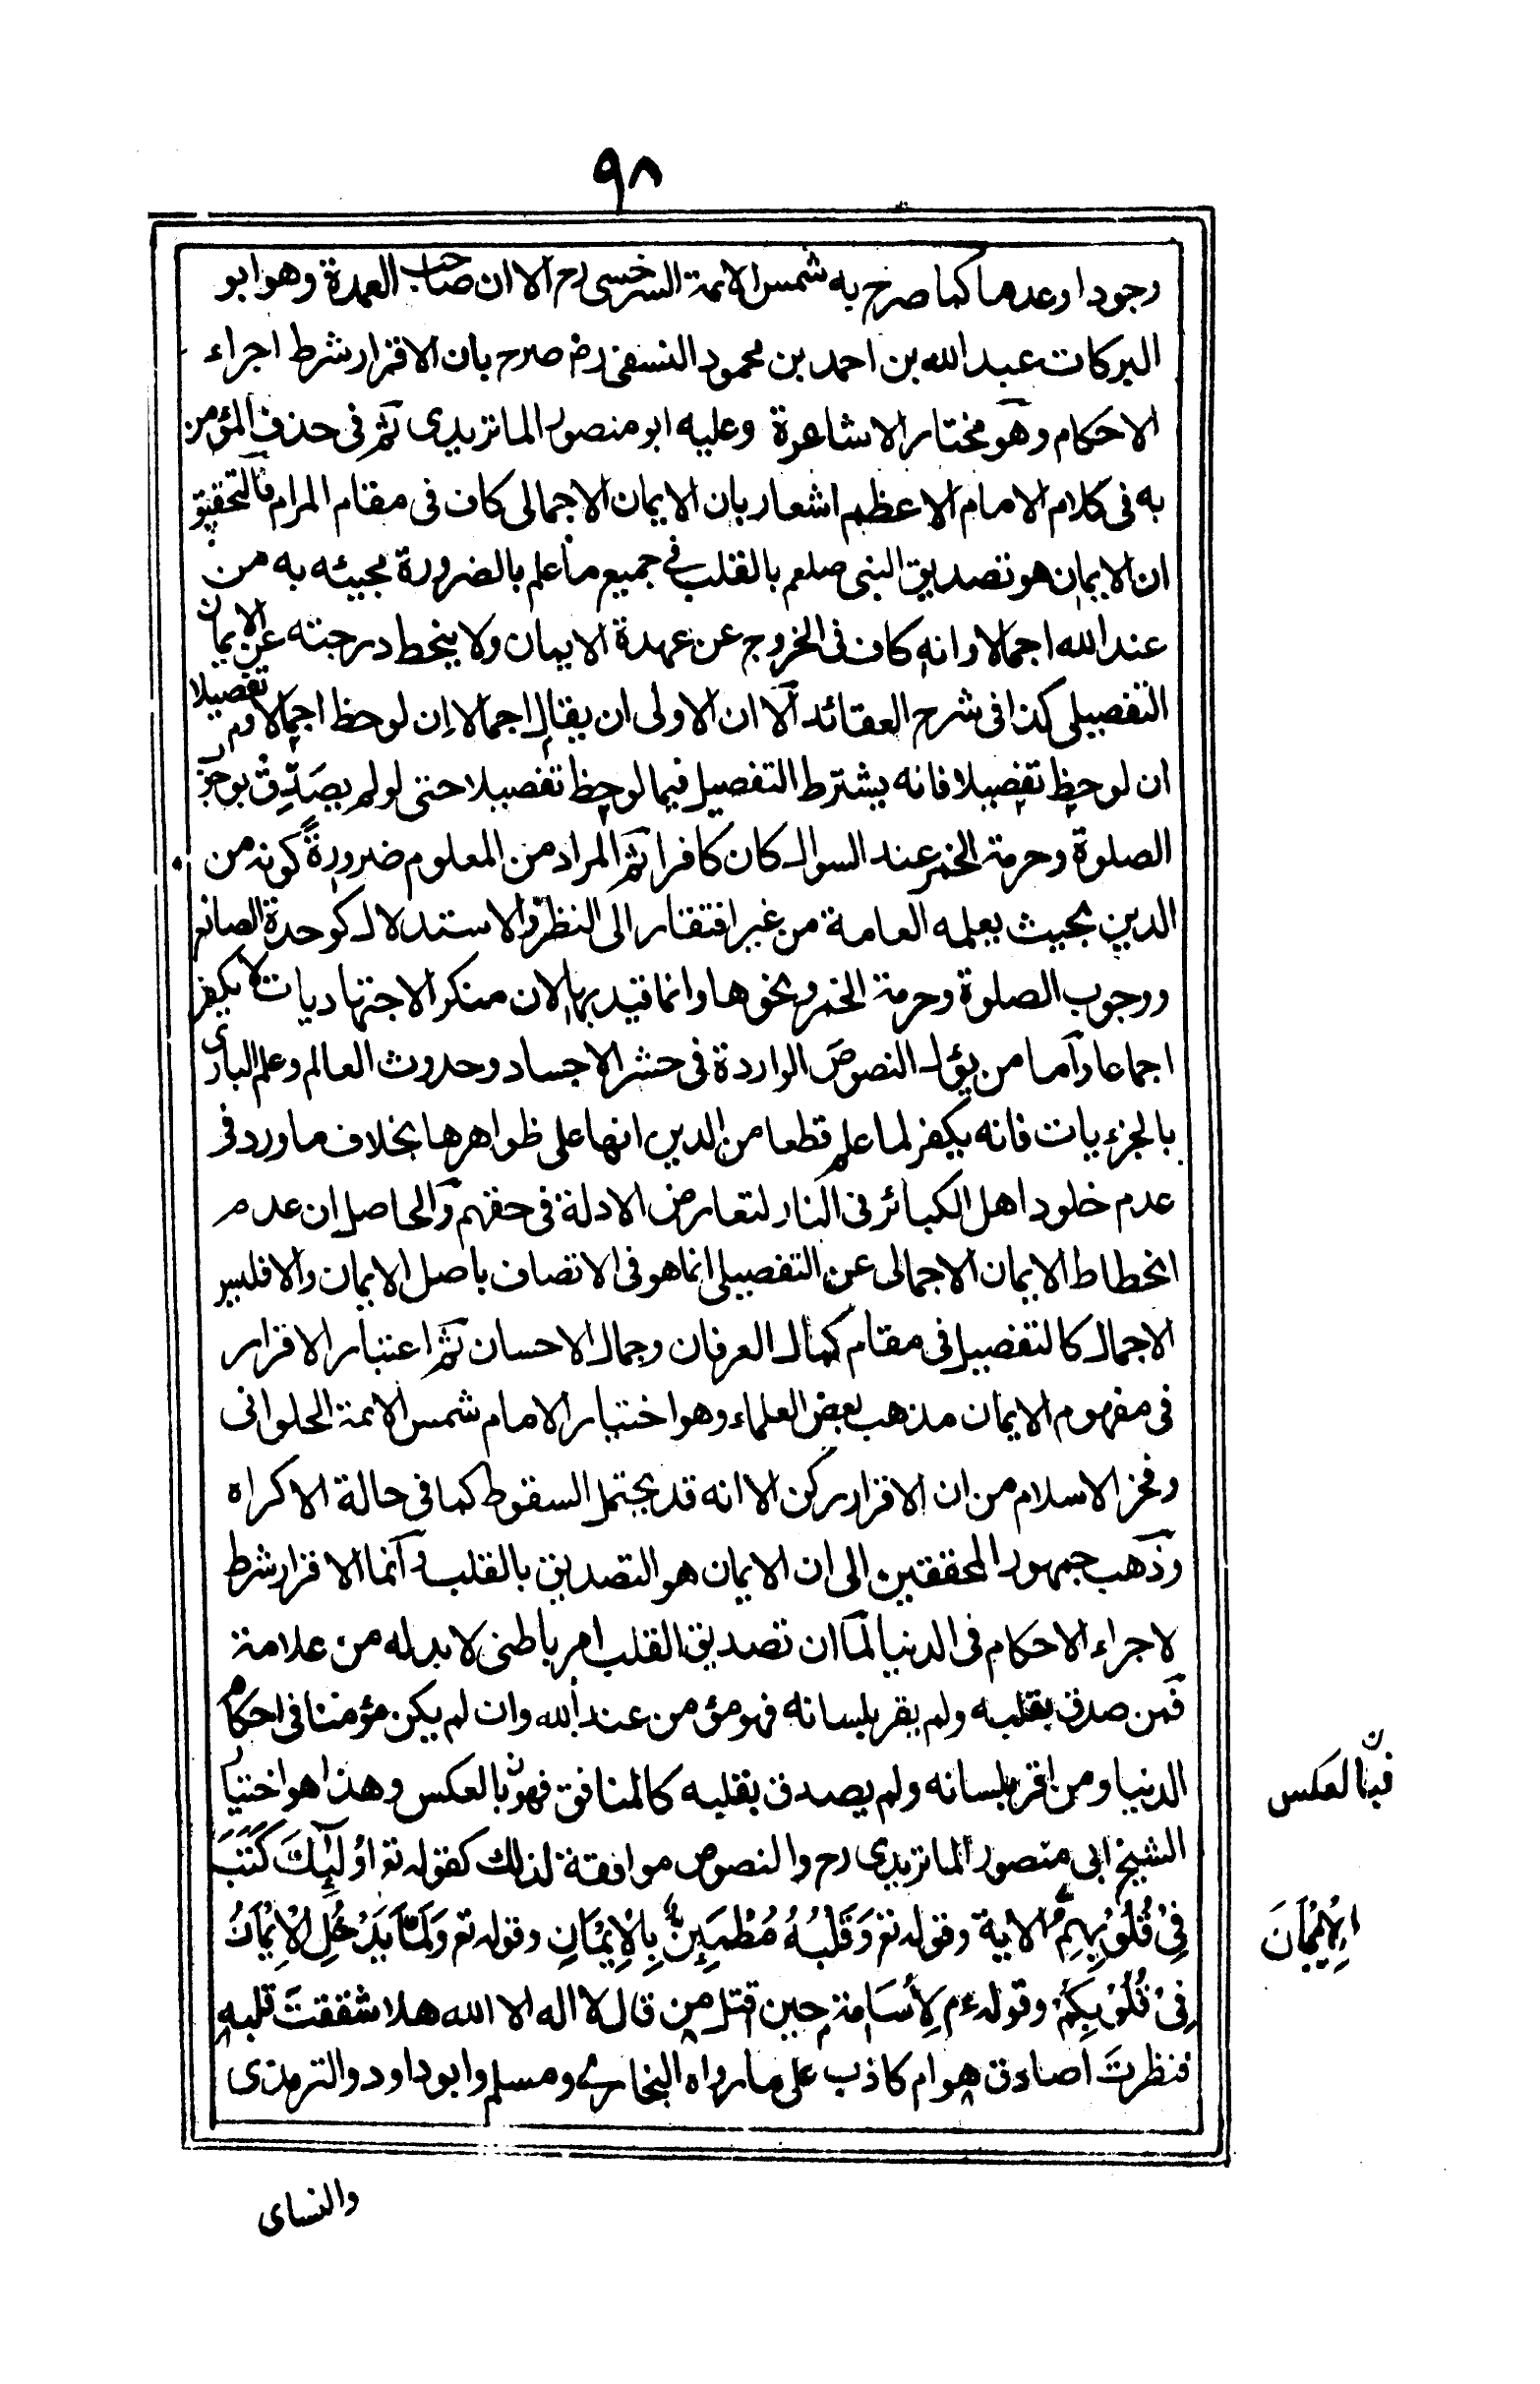 ٩٨
وجودا وعدما كما صرح به شمس الائمة السرخسى رح الا ان صاحب العمدة وهو ابو
البركات عبد الله بن احمد بن محمود النسفى رض صرح بان الاقرار شرط اجراء
الاحكام وهو مختار الاشاعرة وعليه ابو منصور الماتريدى ثم فى حذف المؤمن
به فى كلام الامام الاعظم اشعار بان الايمان الاجمالى كاف فى مقام المرام فالتحقيق
ان الايمان هو تصديق النبى صلعم بالقلب فى جميع ما علم بالضرورة مجيئه به من
عند الله اجمالا وانه كاف فى الخروج عن عهدة الايمان ولا ينحط درجته عن الايمان
التفصيلى كذا فى شرح العقائد الا ان الاولى ان يقال اجمالا ان لوحظ اجمالا وم تفصيلا
ان لوحظ تفصيلا فانه يشترط التفصيل فيما لوحظ تفصيلا حتى لو لم يصَدِّق بوجوب
الصلوة وحرمة الخمر عند السوال كان كافرا ثم المراد من المعلوم ضرورةً كونه من
الدين بحيث يعلمه العامة من غير افتقار الى النظر والاستدلال كوحدة الصانع
ووجوب الصلوة وحرمة الخمر ونحوها وانما قيد بها لان منكر الاجتهاديات لا يكفر
اجماعا وأما من يؤل النصوص الواردة فى حشر الاجساد وحدوث العالم وعلم البارى
بالجزءيات فانه يكفر لما علم قطعا من الدين انها على ظواهرها بخلاف ما ورد فى
عدم خلود اهل الكبائر فى النار لتعارض الادلة فى حقهم والحاصل ان عدم
انحطاط الايمان الاجمالى عن التفصيلى انما هو فى الاتصاف باصل الايمان والا فليس
الاجمال كالتفصيل فى مقام كمال العرفان وجمال الاحسان ثم اعتبار الاقرار
فى مفهوم الايمان مذهب بعض العلماء وهو اختيار الامام شمس الائمة الحلوانى
وفخر الاسلام من ان الاقرار ركن الا انه قد يحتمل السقوط كما فى حالة الاكراه
وذهب جمهور المحققين الى ان الايمان هو التصديق بالقلب وانما الاقرار شرط
لاجراء الاحكام فى الدنيا لما ان تصديق القلب امر باطنى لا بد له من علامة
فمن صدق بقلبه ولم يقر بلسانه فهو مؤمن عند الله وان لم يكن مؤمنا فى احكام
الدنيا ومن اقر بلسانه ولم يصدق بقلبه كالمنافق فهو بالعكس وهذا هو اختيار
فبالعكس
الشيخ ابى منصور الماتريدى رح والنصوص موافقة لذلك كقوله تع اُولٰٓئِكَ كَتَبَ
فِىْ قُلُوْبِهِمُ الاية وقوله تع وَقَلْبُهُ مُطْمَئِنٌّ بِالْاِيْمَانِ وقوله تع وَلَمَّا يَدْخُلِ الْاِيْمَانُ
الْاِيْمَانَ
فِىْ قُلُوْبِكُمْ وقوله ءم لِأُسَامة حين قتل من قال لا اله الا الله هلا شققتَ قلبه
فنظرتَ أصادق هو ام كاذب على ما رواه البخارى ومسلم وابو داود والترمذى
والنساى